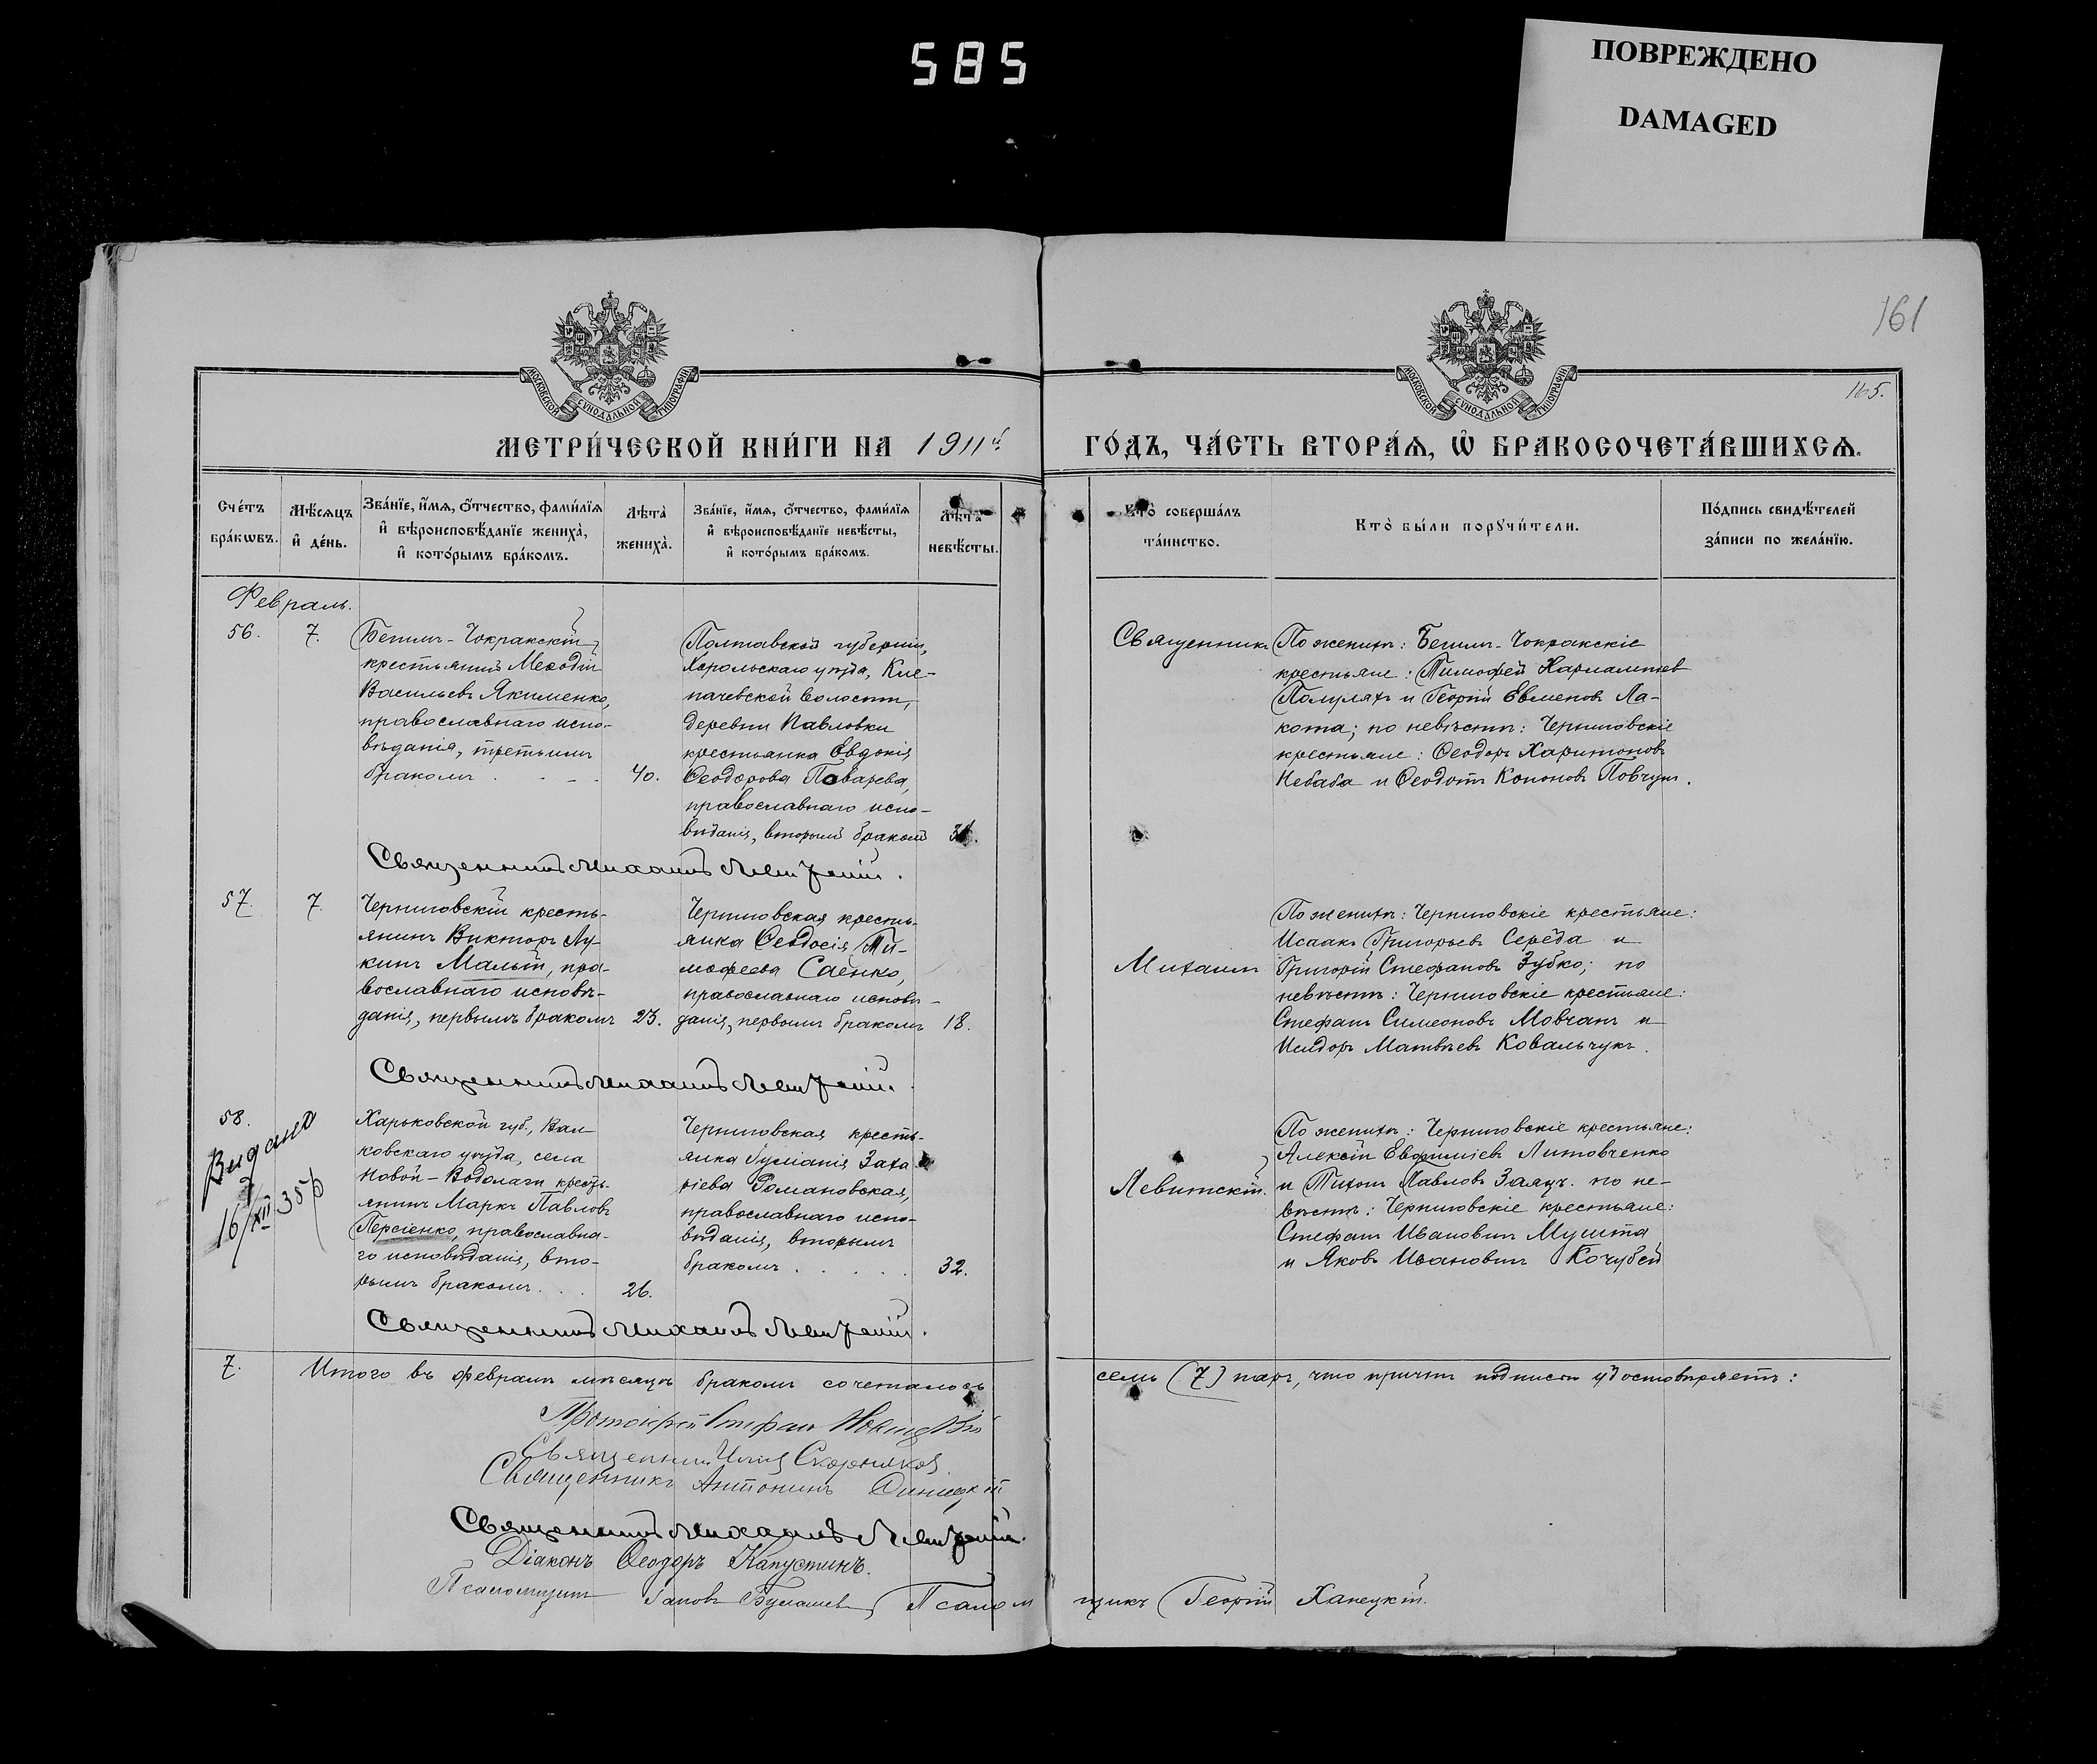 585
ПОВРЕЖДЕНО
DAMAGED
161
165.
МОСКОВСКОЙ СѴНОДАЛЬНОЙ ТИПОГРАФІИ
МОСКОВСКОЙ СѴНОДАЛЬНОЙ ТИПОГРАФІИ
МЕТРИ́ЧЕСКОЙ КНИ́ГИ НА 1911й
ГО́ДЪ, ЧА́СТЬ ВТОРА́Ѧ, Ѽ БРАКОСОЧЕТА́ВШИХСѦ.
Сче́тъ
бра́кѡвъ.
Мѣ́сяцъ
и҆ де́нь.
Зва́нїе, и҆́мѧ, ѻ҆́тчество, фами́лїѧ
и҆ вѣроисповѣ́данїе жениха̀,
и҆ кото́рымъ бра́комъ.
Лѣ́та
жениха̀.
Зва́нїе, и҆́мѧ, ѻ҆́тчество, фами́лїѧ
и҆ вѣроисповѣ́данїе невѣ́сты,
и҆ кото́рымъ бра́комъ.
Лѣ́та
невѣ́сты.
Кто̀ соверша́лъ
та́инство.
Кто̀ бы́ли порꙋчи́тели.
По́дпись свидѣ́телей
за́писи по жела́нїю.
Февраль.
56.
7.
Бегим-Чокракскій
крестьянинъ Меѳодій
Васильевъ Якименко,
православнаго испо-
вѣданія, третьимъ
бракомъ . . . .
40.
Полтавской губерніи,
Хорольскаго уѣзда, Кле-
пачевской волости,
деревни Павловки
крестьянка Евдокія
Ѳеодорова Поварева,
православнаго испо-
вѣданія, вторымъ бракомъ
Священникъ
По женихѣ: Бегим-Чокракскіе
крестьяне: Тимофей Харлампіев
Полулях и Георгій Евменовъ Ла-
кота; по невѣстѣ: Черниговскіе
крестьяне: Ѳеодоръ Харитоновъ
Небаба и Ѳеодотъ Кононовъ Повчун.
Священникъ Михаилъ Левитскій.
57.
7.
Черниговскій кресть-
янинъ Викторъ Лу-
кинъ Малый, пра-
вославнаго исповѣ-
данія, первымъ бракомъ
23.
Черниговская кресть-
янка Ѳеодосія Ти-
мофеева Саенко,
православнаго исповѣ-
данія, первымъ бракомъ
18.
Михаилъ
По женихѣ: Черниговскіе крестьяне:
Исаакъ Григорьевъ Середа и
Григорій Стефановъ Зубко; по
невѣстѣ: Черниговскіе крестьяне:
Стефанъ Симеоновъ Мовчанъ и
Исидоръ Матвѣевъ Ковальчукъ.
Священникъ Михаилъ Левитскій.
58.
Видано
16/XII 35 р
Харьковской губ., Вал-
ковскаго уѣзда, села
Новой-Водолаги кресть-
янинъ Маркъ Павловъ
Персіенко, православна-
го исповѣданія, вто-
рымъ бракомъ . . .
26.
Черниговская кресть-
янка Іуліанія Заха-
ріева Романовская,
православнаго испо-
вѣданія, вторымъ
бракомъ . . . . .
32.
Левитскій.
По женихѣ: Черниговскіе крестьяне:
Алексій Евфиміевъ Литовченко
и Тихонъ Павловъ Заяцъ. по не-
вѣстѣ: Черниговскіе крестьяне:
Стефанъ Ивановичъ Мушта
и Яковъ Ивановичъ Кочубей
Священникъ Михаилъ Левитскій.
7.
Итого въ февралѣ мѣсяцѣ бракомъ сочеталось
семь (7) паръ, что причтъ подписом удостовѣряетъ:
Протоіерей Стефан
Священникъ Илія Скорняков
Священникъ Антонинъ
Священникъ Михаилъ Левитскій.
Діаконъ Ѳеодоръ Капустинъ.
Псаломщикъ Булашев Псалом
щикъ Георгій Ханецкій.